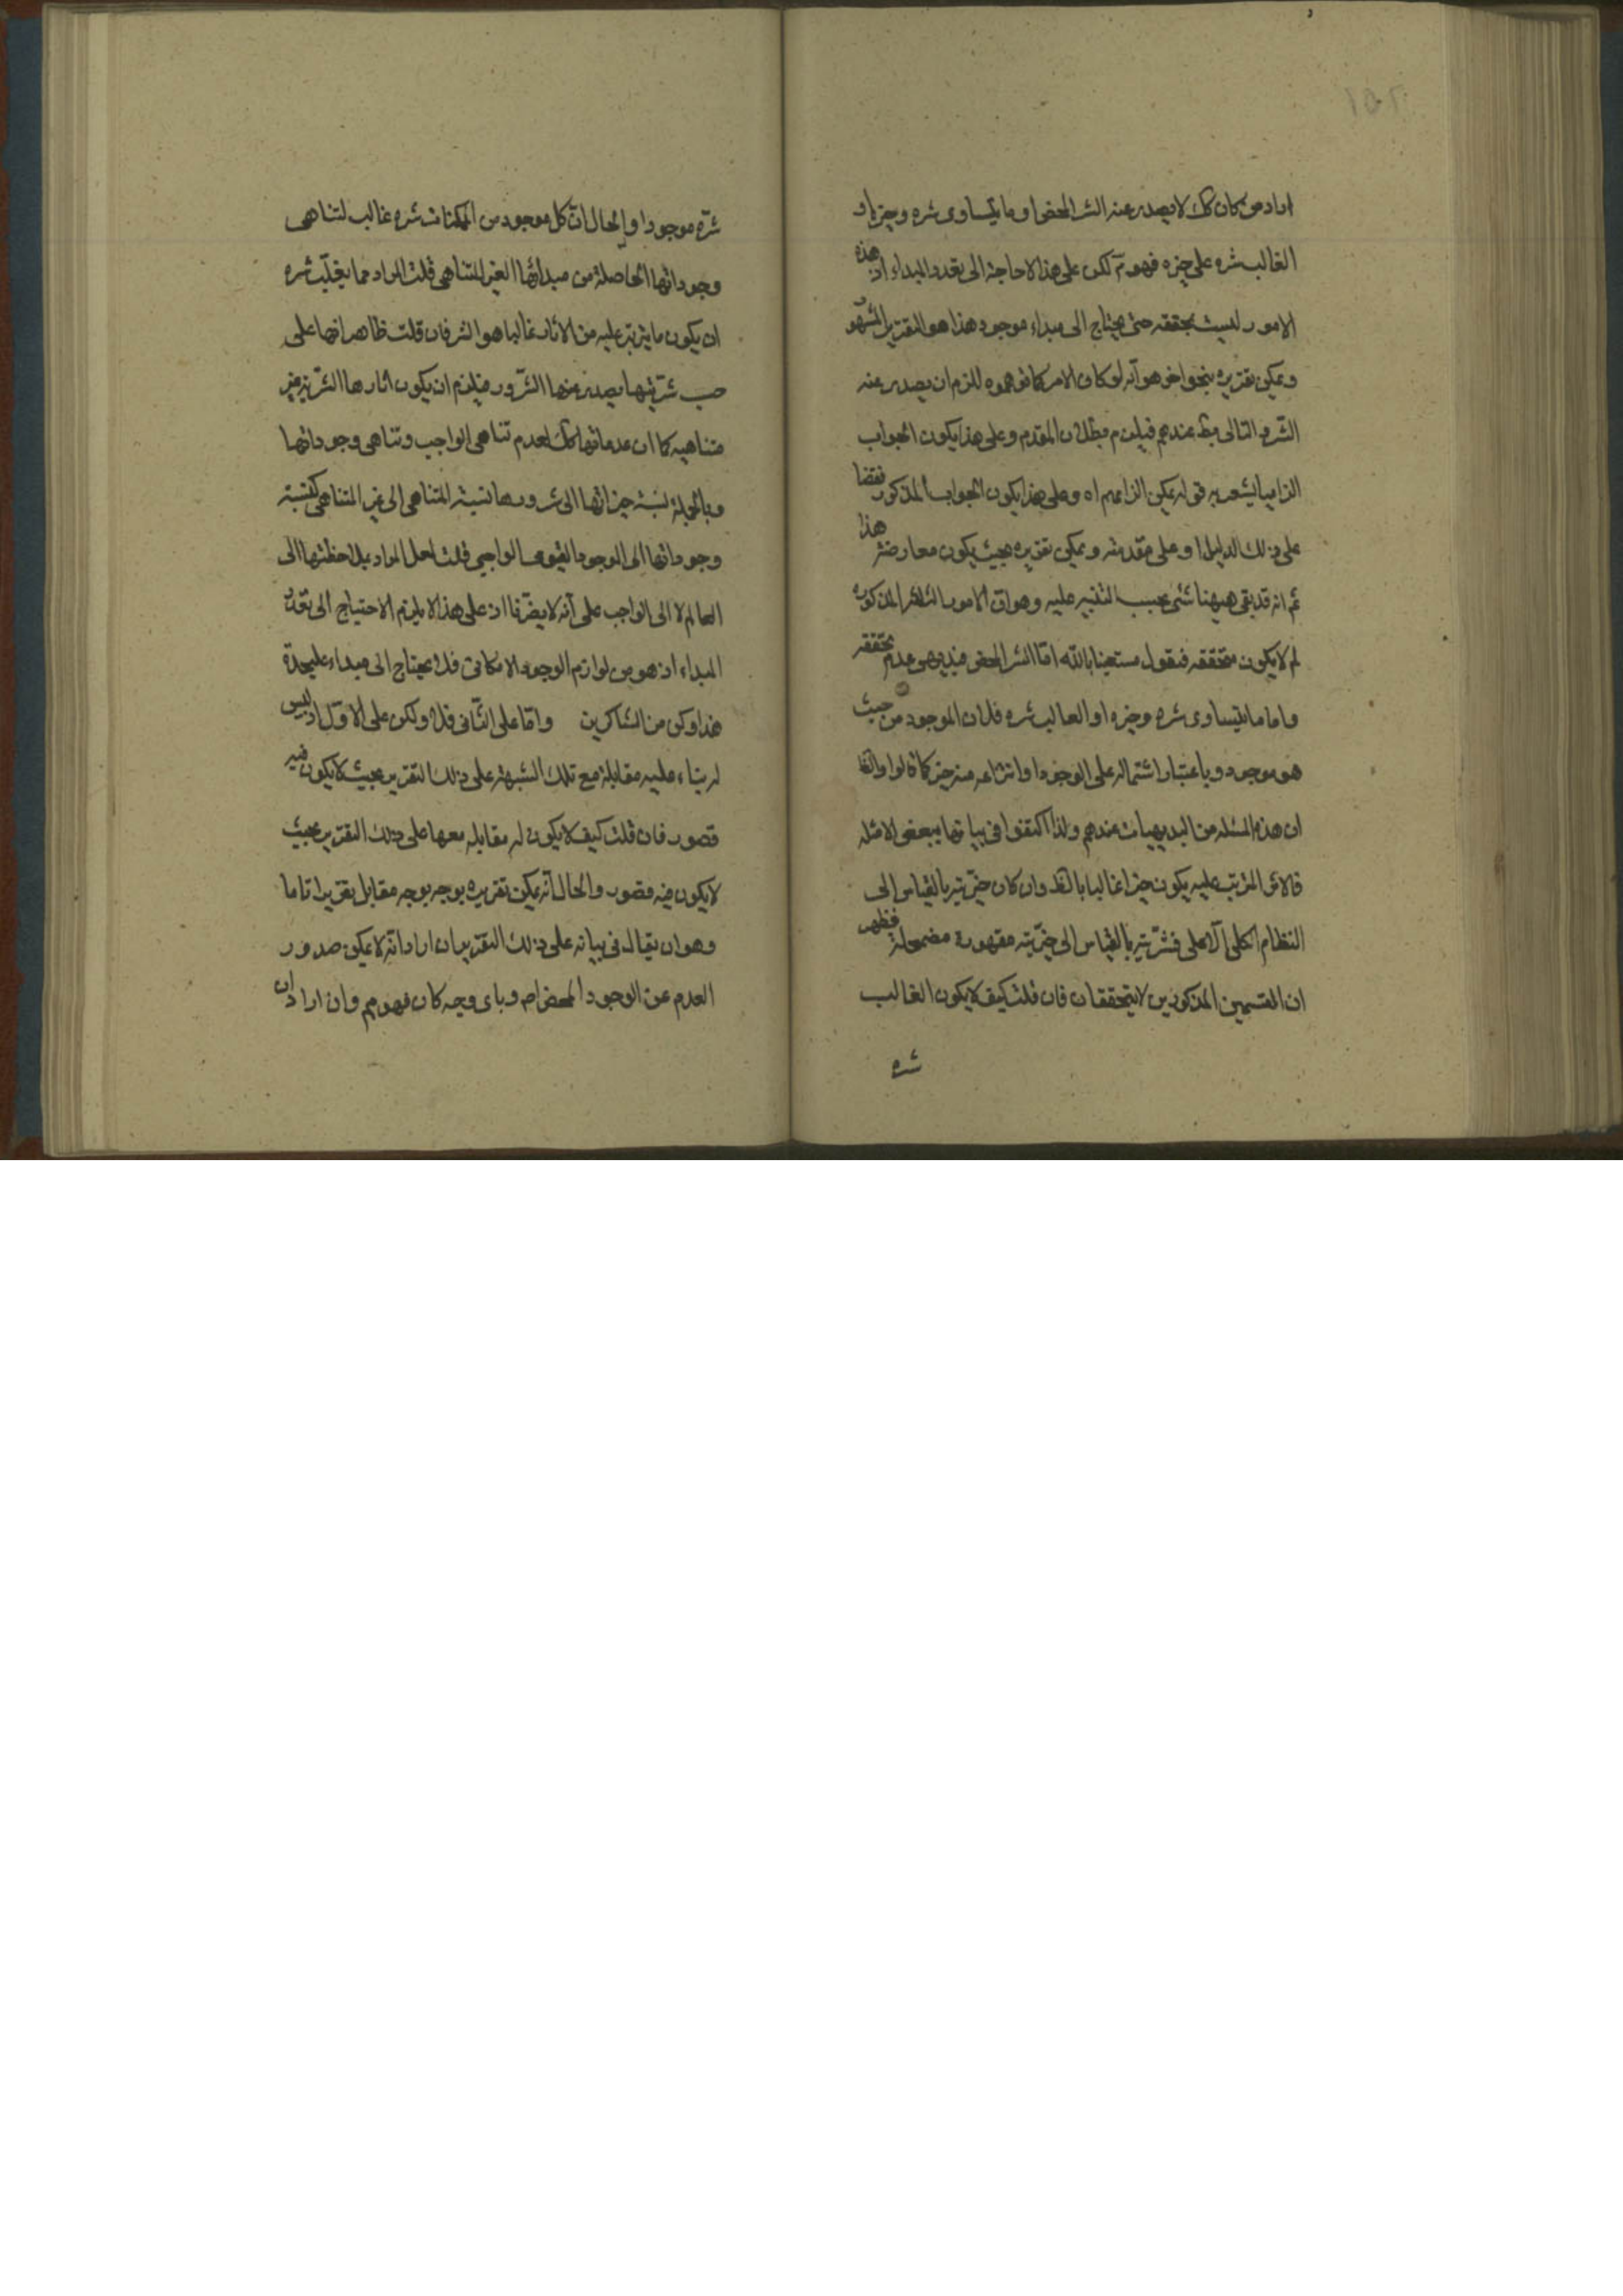 اراد من كان كك لا يصدر عنه الشر المحض او ما يتساوى شره وخيره او
الغالب شره على خيره فهو مم لكن على هذا لا حاجة الى تعدد المبداء اذ هذه
الامور ليست بمحققه حتى يحتاج الى مبداء موجود هذا هو التقرير المشهور
ويمكن تقريره بنحو اخر هو انه لو كان الامر كما توهموه للزم ان يصدر عنه
الشر والتالى بط عندهم فيلزم بطلان المقدم وعلى هذا يكون الجواب
الزاميا يشعر به قوله يمكن الزامهم اه وعلى هذا يكون الجواب المذكور نقضا
على ذلك الدليل او على مقدمته ويمكن تقريره بحيث يكون معارضة هذا
ثم انه قد بقى ههنا شئ يجب التنبيه عليه وهو ان الامور الثلثة المذكورة
لم لا يكون متحققه فنقول مستعينا بالله اما الشر المحض فبديهى عدم تحققه
واما ما يتساوى شره وخيره او الغالب شره فلان الموجود من حيث
هو موجود وباعتبار اشتماله على الوجود او انتزاعه منه خير كما قالوا
ان هذه المسئله من البديهيات عندهم ولذا اكتفوا فى بيانها ببعض الامثله
فالاثر المترتب عليه يكون خيرا غالبا وان كان خيريته بالقياس الى
النظام الكلى الاعلى فشريته بالقياس الى خيريته مقهورة مضمحلة فظهر
ان القسمين المذكورين لا يتحققان فان قلت كيف لا يكون الغالب
شره
شره موجودا والحال ان كل موجود من الممكنات شره غالب لتناهى
وجوداتها الحاصلة من مبدائها الغير المتناهى قلت المراد مما يغلب شره
ان يكون ما يترتب عليه من الاثار غالبا هو الشر فان قلت ظاهر انها على
حسب شريتها يصدر عنها الشرور فيلزم ان يكون اثارها الشرية غير
متناهيه كما ان عدماتها كك لعدم تناهى الواجب وتناهى وجوداتها
وبالجملة نسبة خيراتها الى شرورها نسبة المتناهى الى غير المتناهى كنسبة
وجوداتها الى الوجود القيومى الواجبى قلت لعل المراد بملاحظتها الى
العالم لا الى الواجب على انه لا يضرنا اذ على هذا لا يلزم الاحتياج الى تعدد
المبداء اذ هو من لوازم الوجود الامكانى فلا يحتاج الى مبداء عليحدة
هذا وكن من الشاكرين واما على الثانى فلا ولكن على الاول اذ ليس
له بناء عليه مقابلة مع تلك الشبهة على ذلك التقرير بحيث لا يكون فيه
قصور فان قلت كيف لا يكون له مقابله معها على ذلك التقرير بحيث
لا يكون فيه قصور والحال انه يمكن تقريره بوجه بوجه مقابل تقريرا تاما
وهو ان يقال فى بيانه على ذلك التقرير ان اراد انه لا يمكن صدور
العدم عن الوجود المحض اه وباى وجه كان فهو مم وان اراد ان